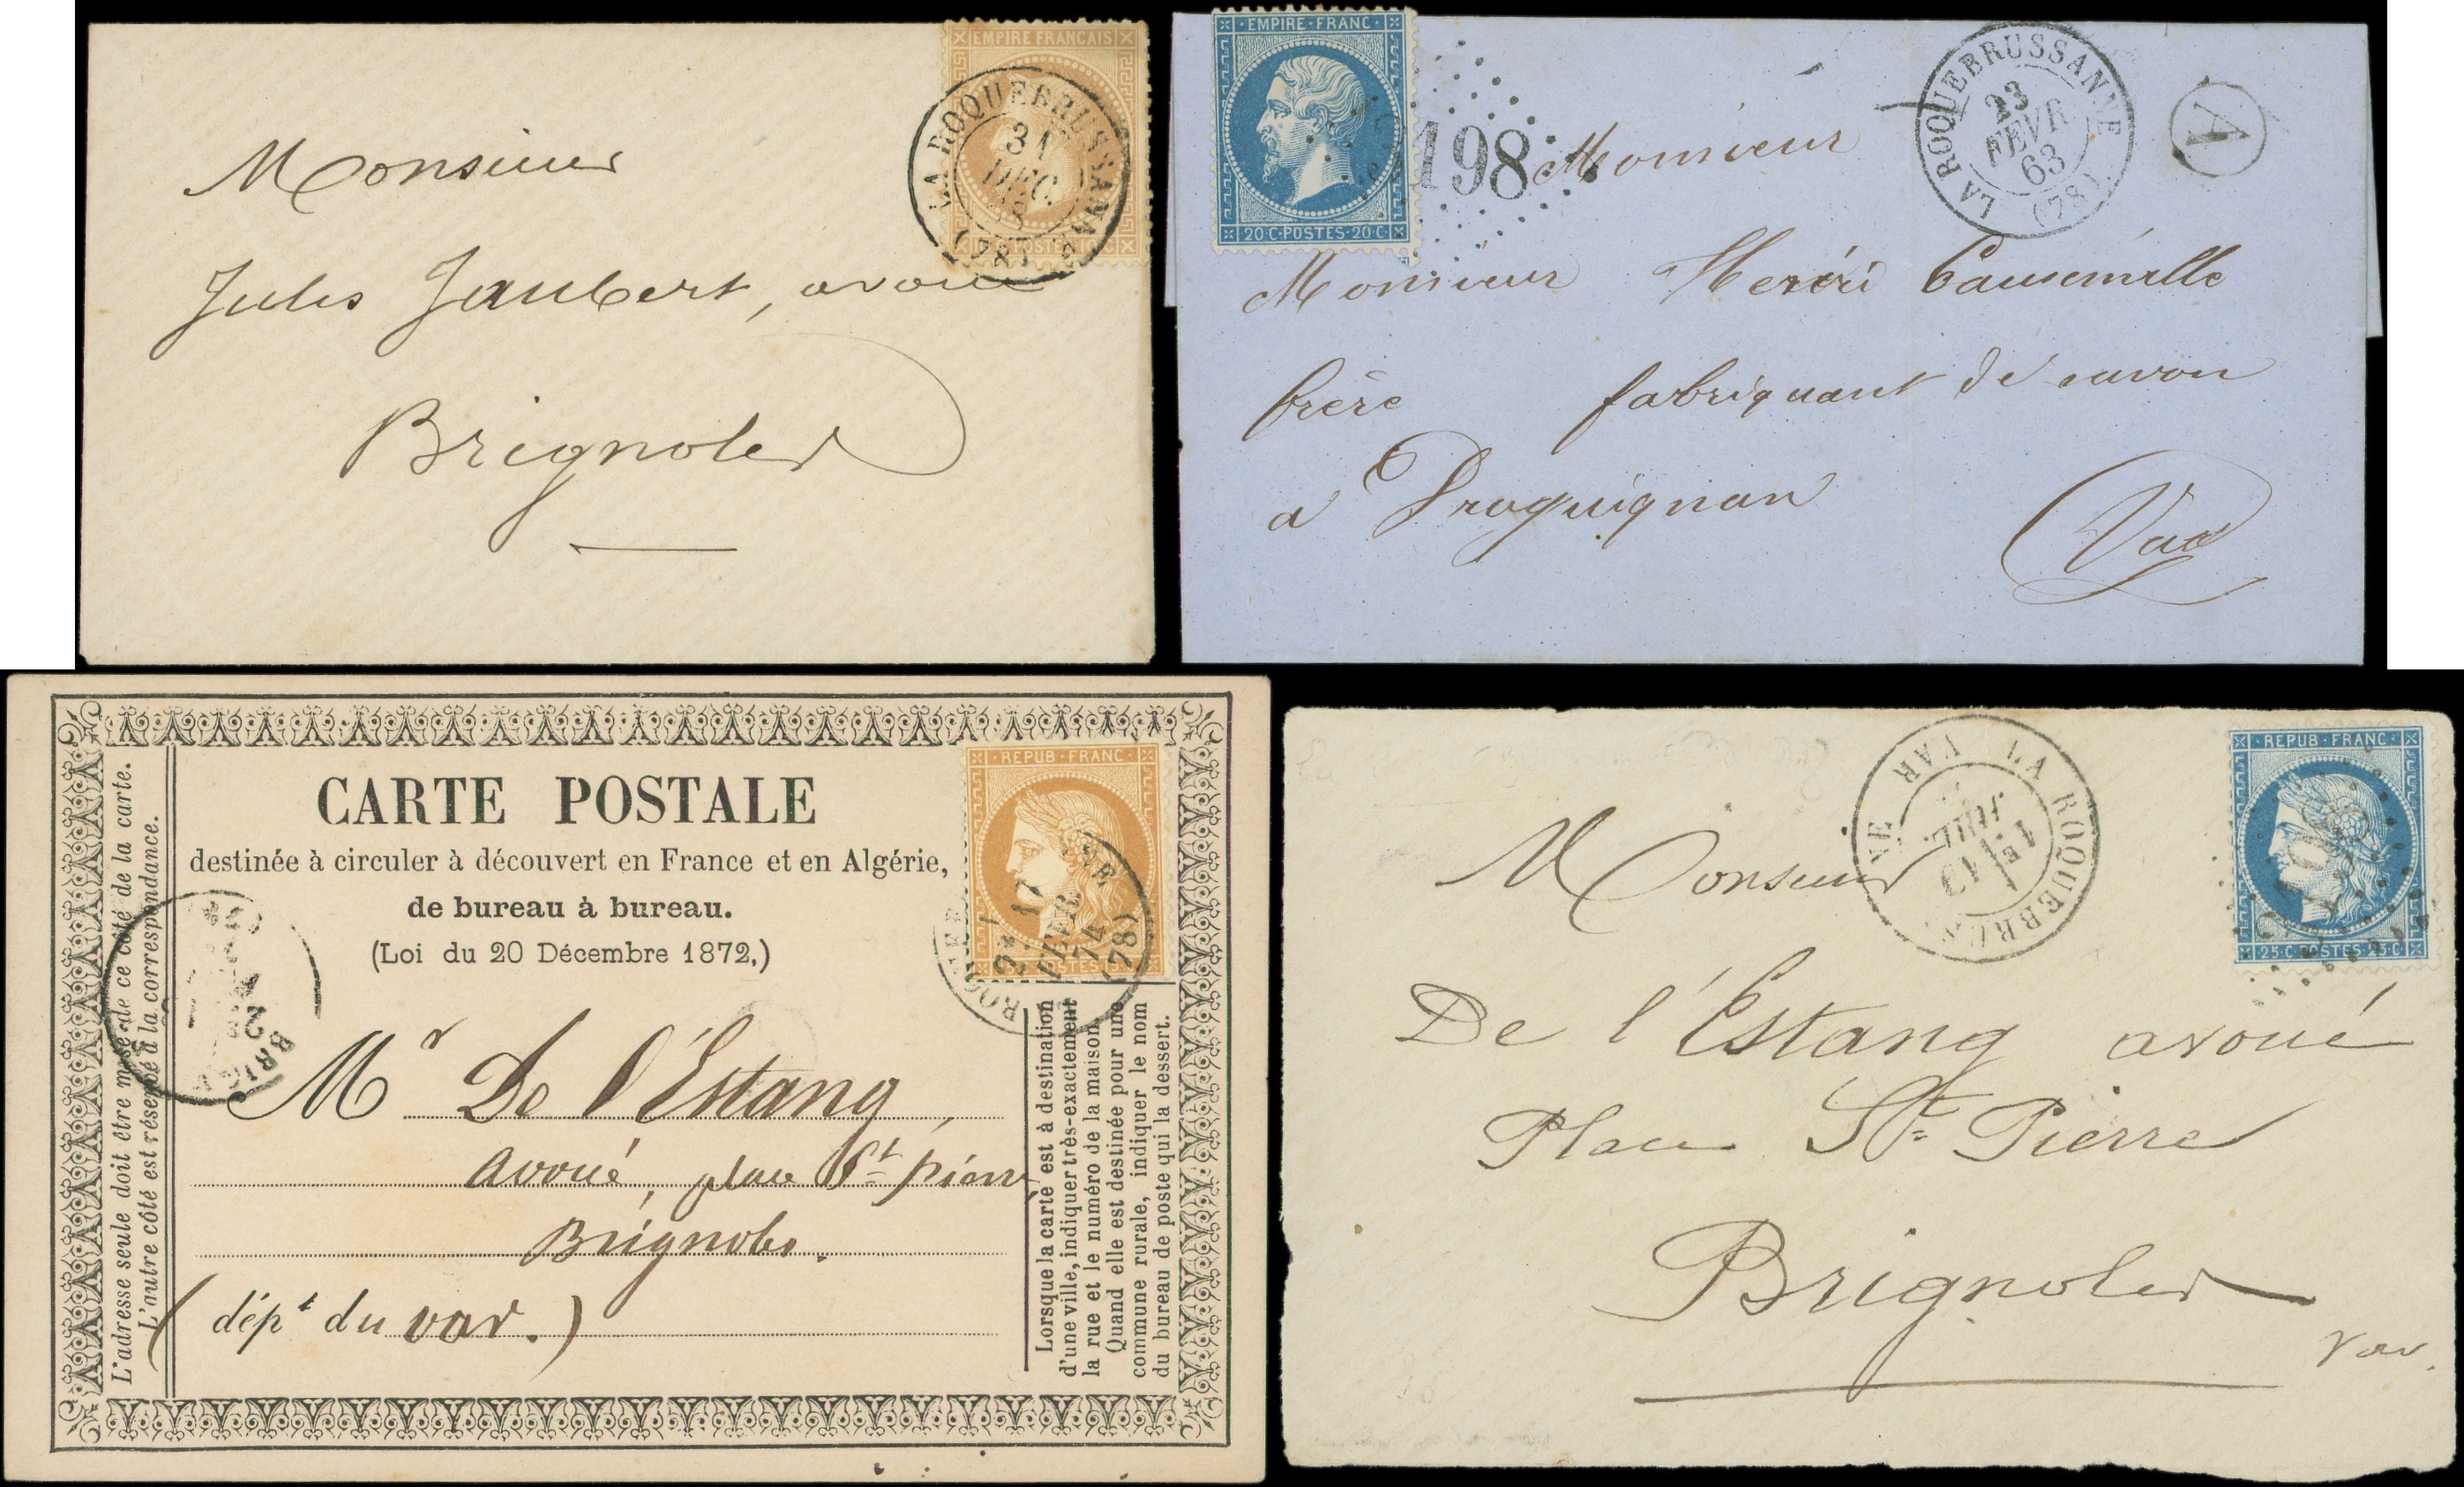 EMPIRE FRANCAIS
LA ROQUEBRUSSANNE
31
DEC.
(78)
Monsieur
Jules Jaubert, avoué
Brignoles
EMPIRE·FRANC·
20·C·POSTES·20·C·
198
LA ROQUEBRUSSANNE
23
FEVR
63
(78)
A
Monsieur
Monsieur Henri
frère fabriquant de savon
a Draguignan
Var
CARTE POSTALE
destinée à circuler à découvert en France et en Algérie,
de bureau à bureau.
(Loi du 20 Décembre 1872,)
REPUB·FRANC·
17
FEVR
74
(78)
L'adresse seule doit être mise de ce côté de la carte.
L'autre côté est réservé à la correspondance.
BRIGN
Mr De l'Estang,
avoué, place St pierre
Brignoles.
(dépt du var.)
Lorsque la carte est à destination
d'une ville, indiquer très-exactement
la rue et le numéro de la maison.
Quand elle est destinée pour une
commune rurale, indiquer le nom
du bureau de poste qui la dessert.
LA ROQUEBRUS
VAR
1E
13
JUIL
REPUB·FRANC·
25·C·POSTES·25·C·
Monsieur
De l'Estang avoué
Place St Pierre
Brignoles
Var.